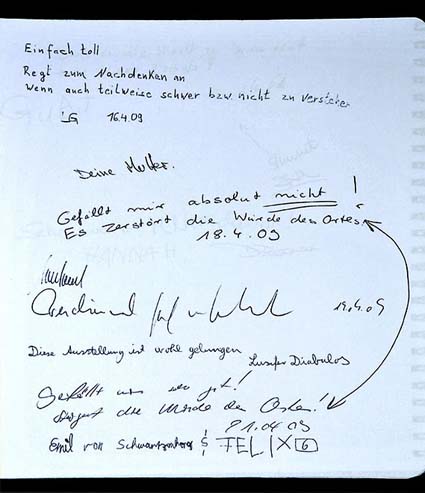 Einfach toll
Regt zum Nachdenken an
Wenn auch teilweise schwer bzw. nicht zu verstehen
LG 16.4.09
Deine Mutter.
Gefällt mir absolut nicht!
Es zerstört die Würde des Ortes.
18.4.09
19.4.09
Diese Ausstellung ist wohl gelungen
Lucifer Diabolos
Gefällt uns sehr gut!
die Würde des Ortes!
21.04.09
Emil von Schwartzenberg & FELIX 6